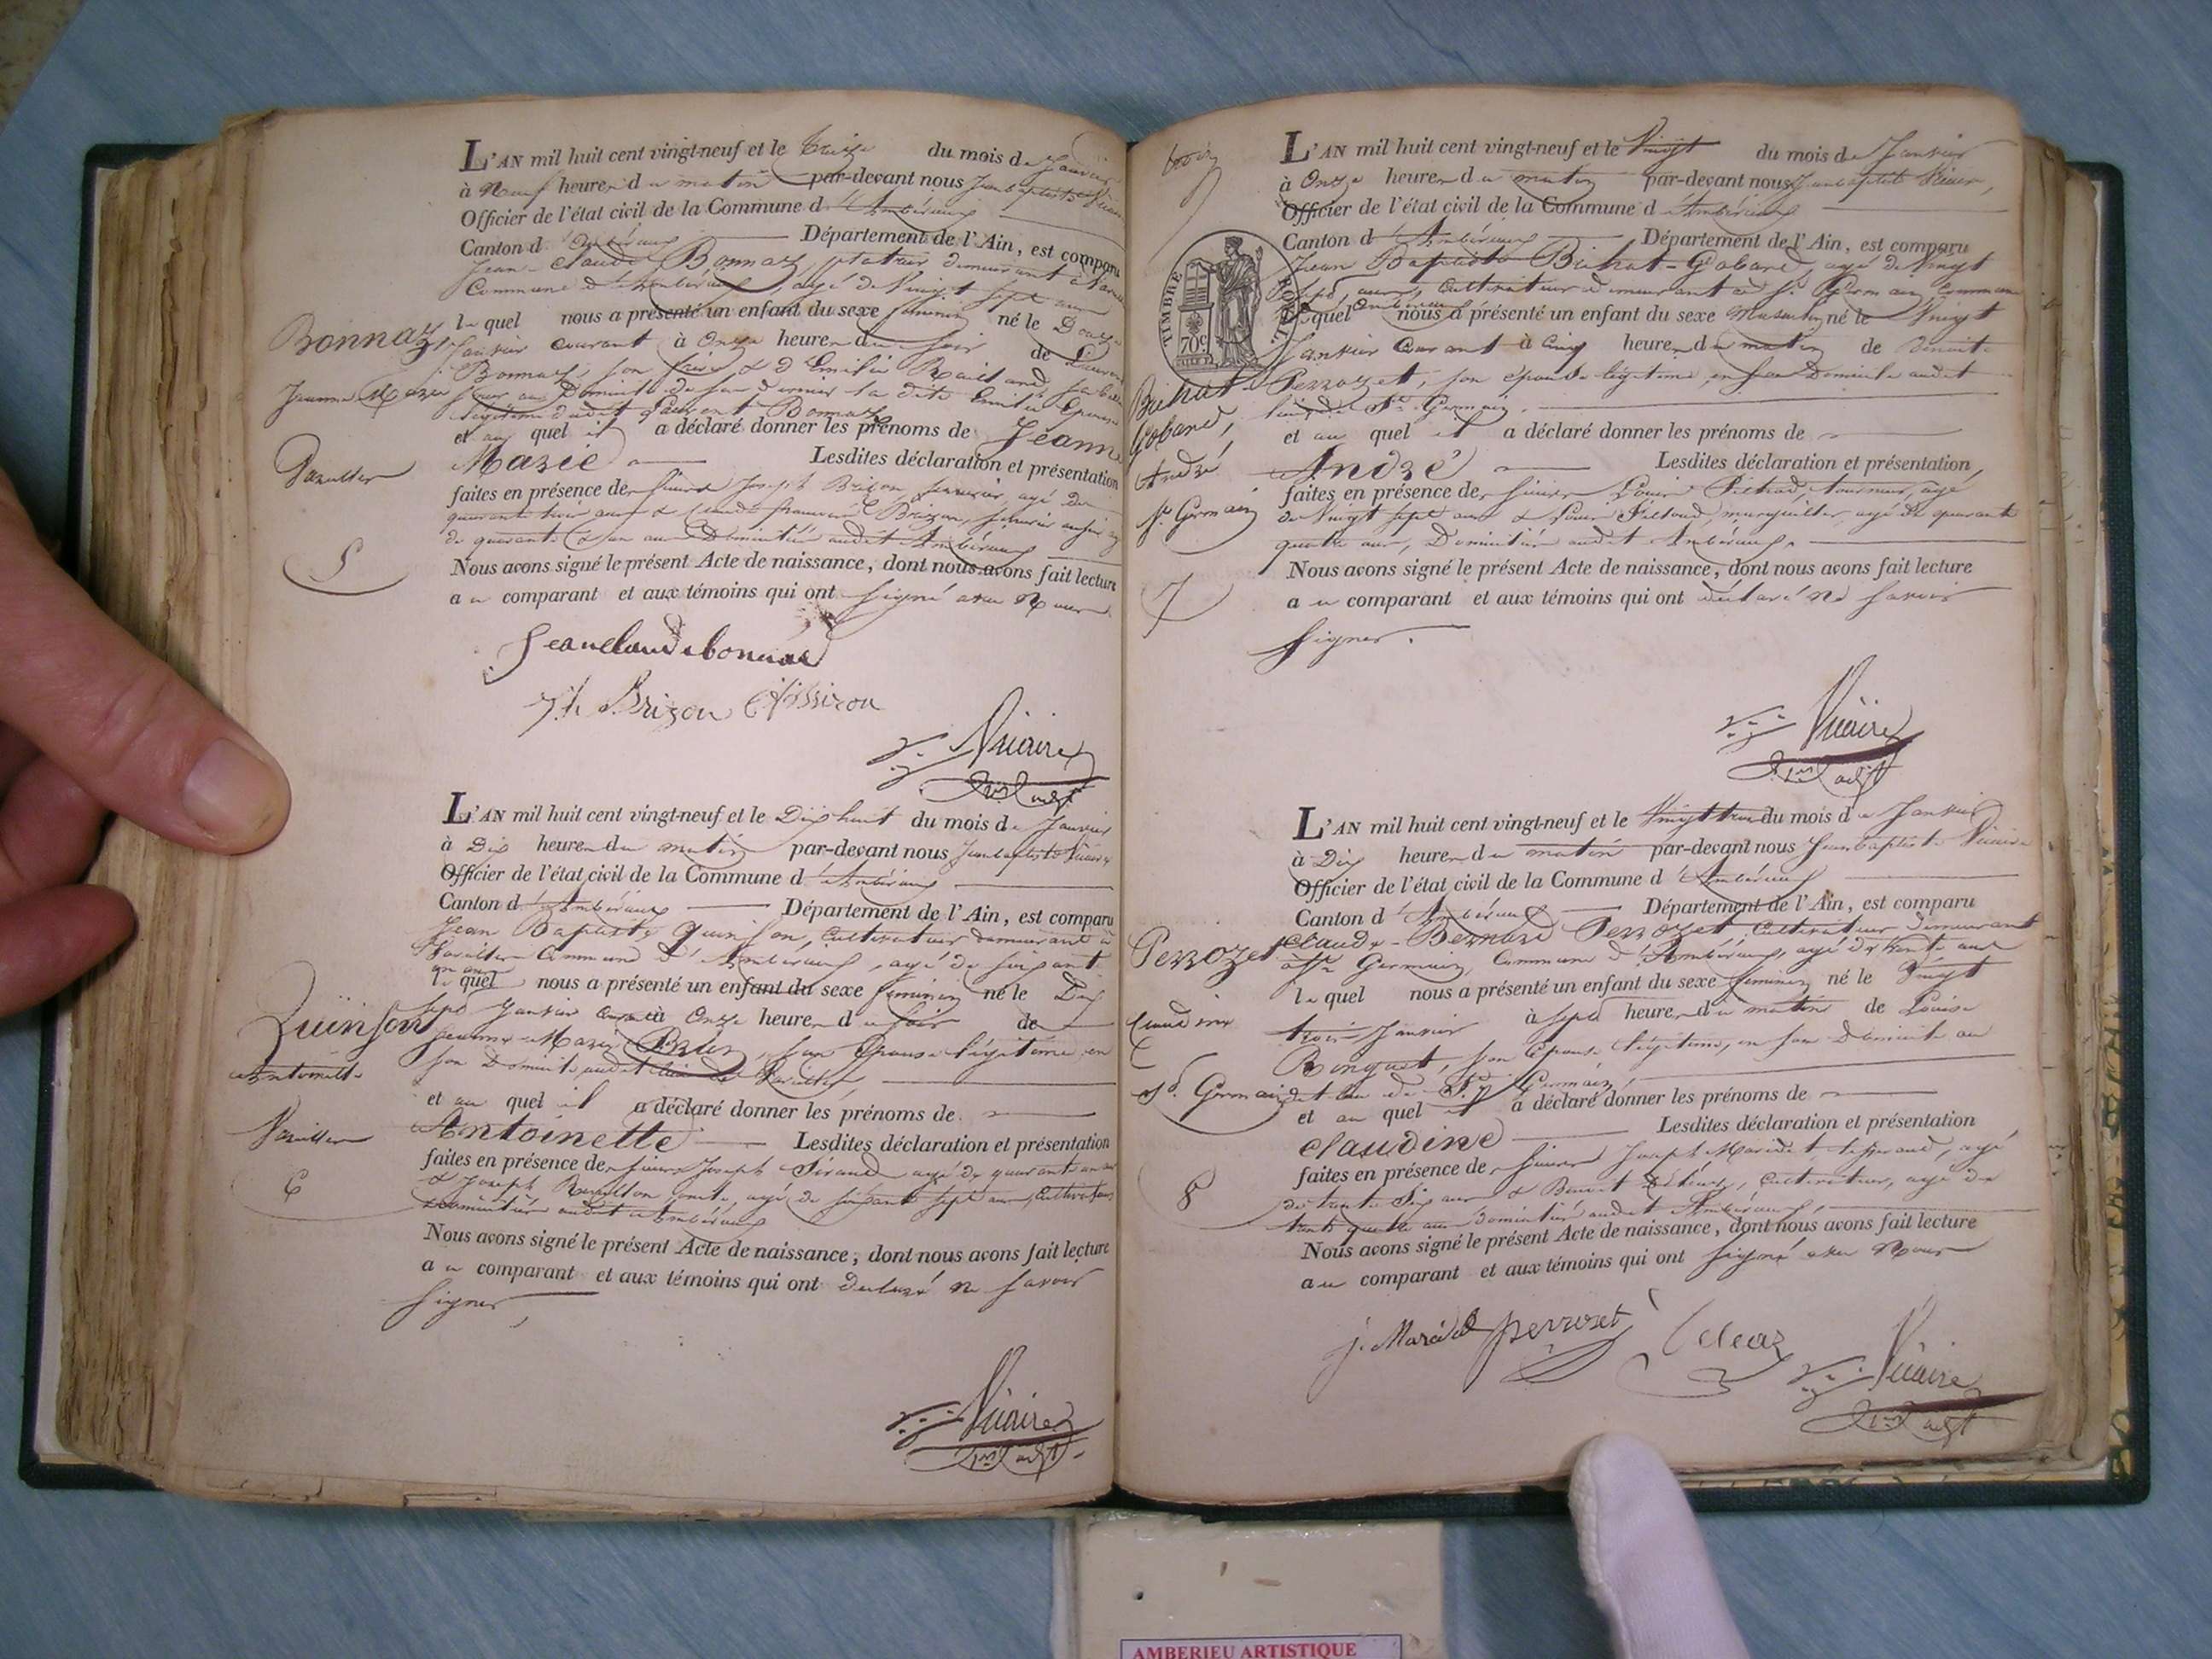 Bonnaz,
Jeanne Marie
Varillen
5
L'AN mil huit cent vingt-neuf et le treize du mois de Janvier
à Neuf heures du matin par-devant nous Jean baptiste Vicaire
Officier de l'état civil de la Commune d'Ambérieux
Canton d'Ambérieux Département de l'Ain, est comparu
Jean-Claude Bonnaz, platrier demeurant à
Commune d'Ambérieux, agé de Vingt sept ans
lequel nous a présenté un enfant du sexe feminin né le Douze
Janvier courant à Onze heures du soir de Laurent
Bonnaz, son frère & d'Emilie
sœur au Domicile de ce dernier la dite Emilie Epouse
légitime dudit Laurent Bonnaz
et au quel il a déclaré donner les prénoms de Jeanne
Marie Lesdites déclaration et présentation
faites en présence de sieurs Joseph Brizon, serrurier, agé de
quarante trois ans & Claude françois Brizon, serrurier aussi agé
de quarante & un ans Domiciliés audit Ambérieux
Nous avons signé le présent Acte de naissance, dont nous avons fait lecture
au comparant et aux témoins qui ont signé avec Nous
Jeanclaudebonnaz
Jh Brizon
Vicaire
Quinson
Antoinette
Varillen
6
L'AN mil huit cent vingt-neuf et le Dix huit du mois de Janvier
à Dix heures du matin par-devant nous Jean baptiste Vicaire
Officier de l'état civil de la Commune d'Ambérieux
Canton d'Ambérieux Département de l'Ain, est comparu
Jean Baptiste Quinson, Cultivateur demeurant à
Varillen Commune d'Ambérieux, agé de soixante
un ans
lequel nous a présenté un enfant du sexe feminin né le Dix
sept Janvier courant à Onze heures du soir de
Jeanne-Marie Brun, son Epouse légitime en
son Domicile audit lieu de Varillen,
et au quel il a déclaré donner les prénoms de
Antoinette Lesdites déclaration et présentation
faites en présence de sieurs Joseph Sirand agé de quarante ans
& Joseph agé de soixante sept ans, Cultivateurs
Domiciliés audit Ambérieux
Nous avons signé le présent Acte de naissance, dont nous avons fait lecture
au comparant et aux témoins qui ont declaré ne savoir
signer,
Vicaire
trois
TIMBRE ROYAL
70c
Bichat
Gobard,
André
St Germain
7
L'AN mil huit cent vingt-neuf et le Vingt du mois de Janvier
à Onze heures du matin par-devant nous Jean baptiste Vicaire,
Officier de l'état civil de la Commune d'Ambérieux
Canton d'Ambérieux Département de l'Ain, est comparu
Jean Baptiste Bichat-Gobard, agé de Vingt
sept ans, Cultivateur demeurant à St Germain Commune
d'Ambérieux
lequel nous a présenté un enfant du sexe Masculin né le Vingt
Janvier Courant à Cinq heures du matin de Benoite
Perrozet, son épouse légitime en son Domicile audit
lieu de St Germain.
et au quel il a déclaré donner les prénoms de
André Lesdites déclaration et présentation
faites en présence de sieurs Louis tourneur, agé
de Vingt sept ans & Louis marguillier, agé de quarante
quatre ans, Domiciliés audit Ambérieux.
Nous avons signé le présent Acte de naissance, dont nous avons fait lecture
au comparant et aux témoins qui ont déclaré ne savoir
signer.
Vicaire
Perrozet
Claudine
St. Germain
8
L'AN mil huit cent vingt-neuf et le Vingt trois du mois de Janvier
à Dix heures du matin par-devant nous Jean baptiste Vicaire
Officier de l'état civil de la Commune d'Ambérieux
Canton d'Ambérieux Département de l'Ain, est comparu
Claude-Bernard Perrozet Cultivateur Demeurant
à St Germain, Commune d'Ambérieux, agé de trente ans
lequel nous a présenté un enfant du sexe feminin né le Vingt
trois Janvier à sept heures du matin de Louise
son Epouse légitime, en son Domicile au
dit lieu de St. Germain,
et au quel il a déclaré donner les prénoms de
Claudine Lesdites déclaration et présentation
faites en présence de sieurs Joseph Maridet tisserand, agé
de trente Six ans & Benoit Cultivateur, agé de
trente quatre ans Domiciliés audit Ambérieux,
Nous avons signé le présent Acte de naissance, dont nous avons fait lecture
au comparant et aux témoins qui ont signé avec Nous
j. Maridet perrozet
Vicaire
AMBERIEU ARTISTIQUE